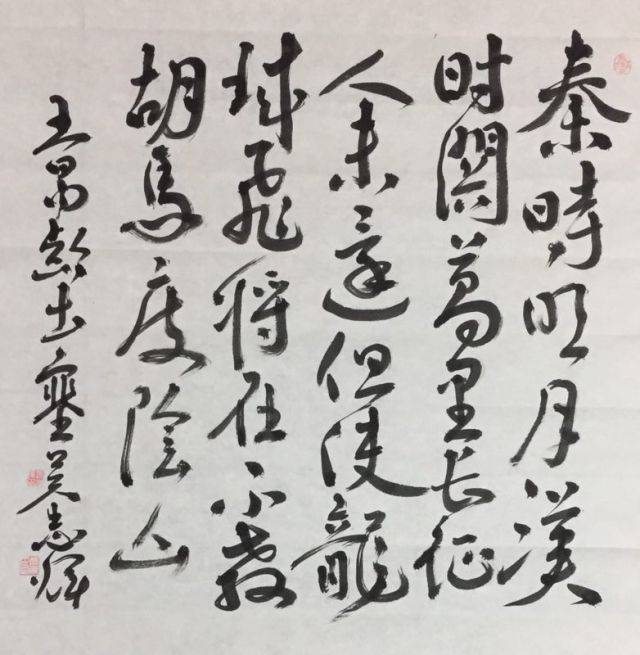 秦時明月漢
时関萬里長征
人未還但使龍
城飛將在不教
胡馬度陰山
王昌齡出塞吴志輝